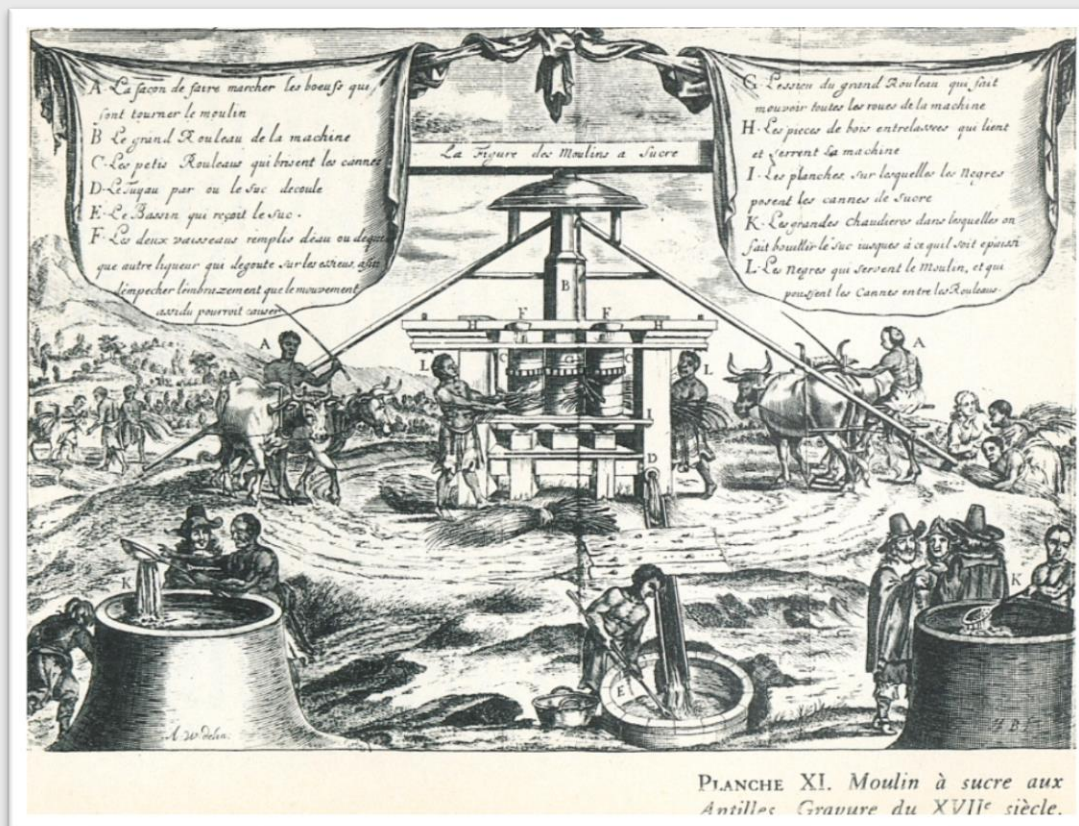 A. La façon de faire marcher les boeufs qui
font tourner le moulin
B Le grand Rouleau de la machine
C. Les petis Rouleaus qui brisent les cannes
D. Le Tuyau par ou le suc decoule
E. Le Bassin qui reçoit le suc.
F. Les deux vaisseaus remplis d'eau ou de quel
que autre liqueur qui degoute sur les essieus, afin
d'empecher l'embrazement que le mouvement
assidu pourroit causer
La Figure des Moulins a Sucre
G. L'essieu du grand Rouleau qui fait
mouvoir toutes les roues de la machine
H. Les pieces de bois entrelassees qui lient
et serrent la machine
I. Les planches sur lesquelles les Negres
posent les cannes de sucre
K. Les grandes Chaudieres dans lesquelles on
fait bouillir le suc iusques à ce qu'il soit epaissi
L. Les Negres qui servent le Moulin, et qui
poussent les Cannes entre les Rouleaus.
B
F F
A H H A
L C G C L
I
D
K K
E
A. W. delin.
PLANCHE XI. Moulin à sucre aux
Antilles Gravure du XVIIe siècle.